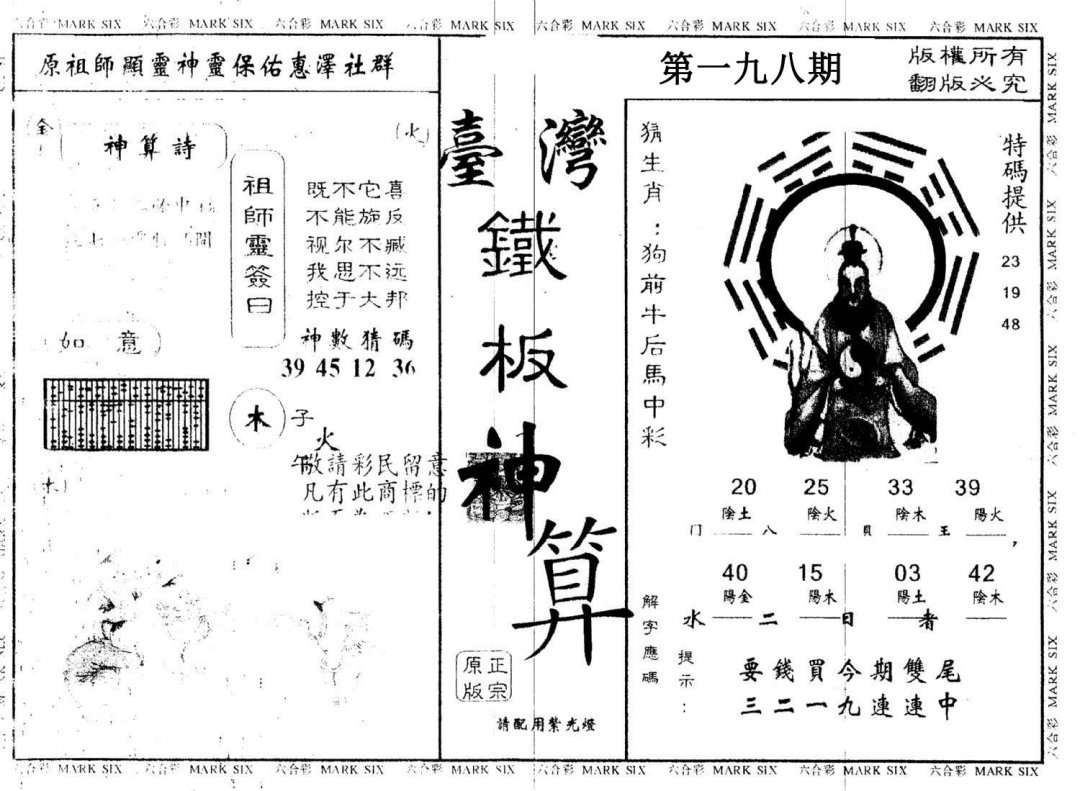 六合彩 MARK SIX 六合彩 MARK SIX 六合彩 MARK SIX 六合彩 MARK SIX 六合彩 MARK SIX 六合彩 MARK SIX 六合彩 MARK SIX 六合彩 MARK SIX
原祖師顯靈神靈保佑惠澤社群
金
火
神算詩
祖師靈簽曰
既不它喜
不能旋反
视尔不臧
我思不远
控于大邦
神數猜碼
39 45 12 36
如意
木
子
火
午
敬請彩民留意
凡有此商標的
水
臺灣
鐵板神算
正宗
原版
請配用紫光燈
第一九八期
版權所有
翻版必究
猜生肖：狗前牛后馬中彩
特碼提供
23
19
48
20 25 33 39
陰土 陰火 陰木 陽火
门 八 貝 王
40 15 03 42
陽金 陽木 陽土 陰木
水 二 日 者
解字應碼
提示：
要錢買今期雙尾
三二一九連連中
六合彩 MARK SIX 六合彩 MARK SIX 六合彩 MARK SIX 六合彩 MARK SIX 六合彩 MARK SIX
六合彩 MARK SIX 六合彩 MARK SIX 六合彩 MARK SIX 六合彩 MARK SIX 六合彩 MARK SIX 六合彩 MARK SIX 六合彩 MARK SIX 六合彩 MARK SIX